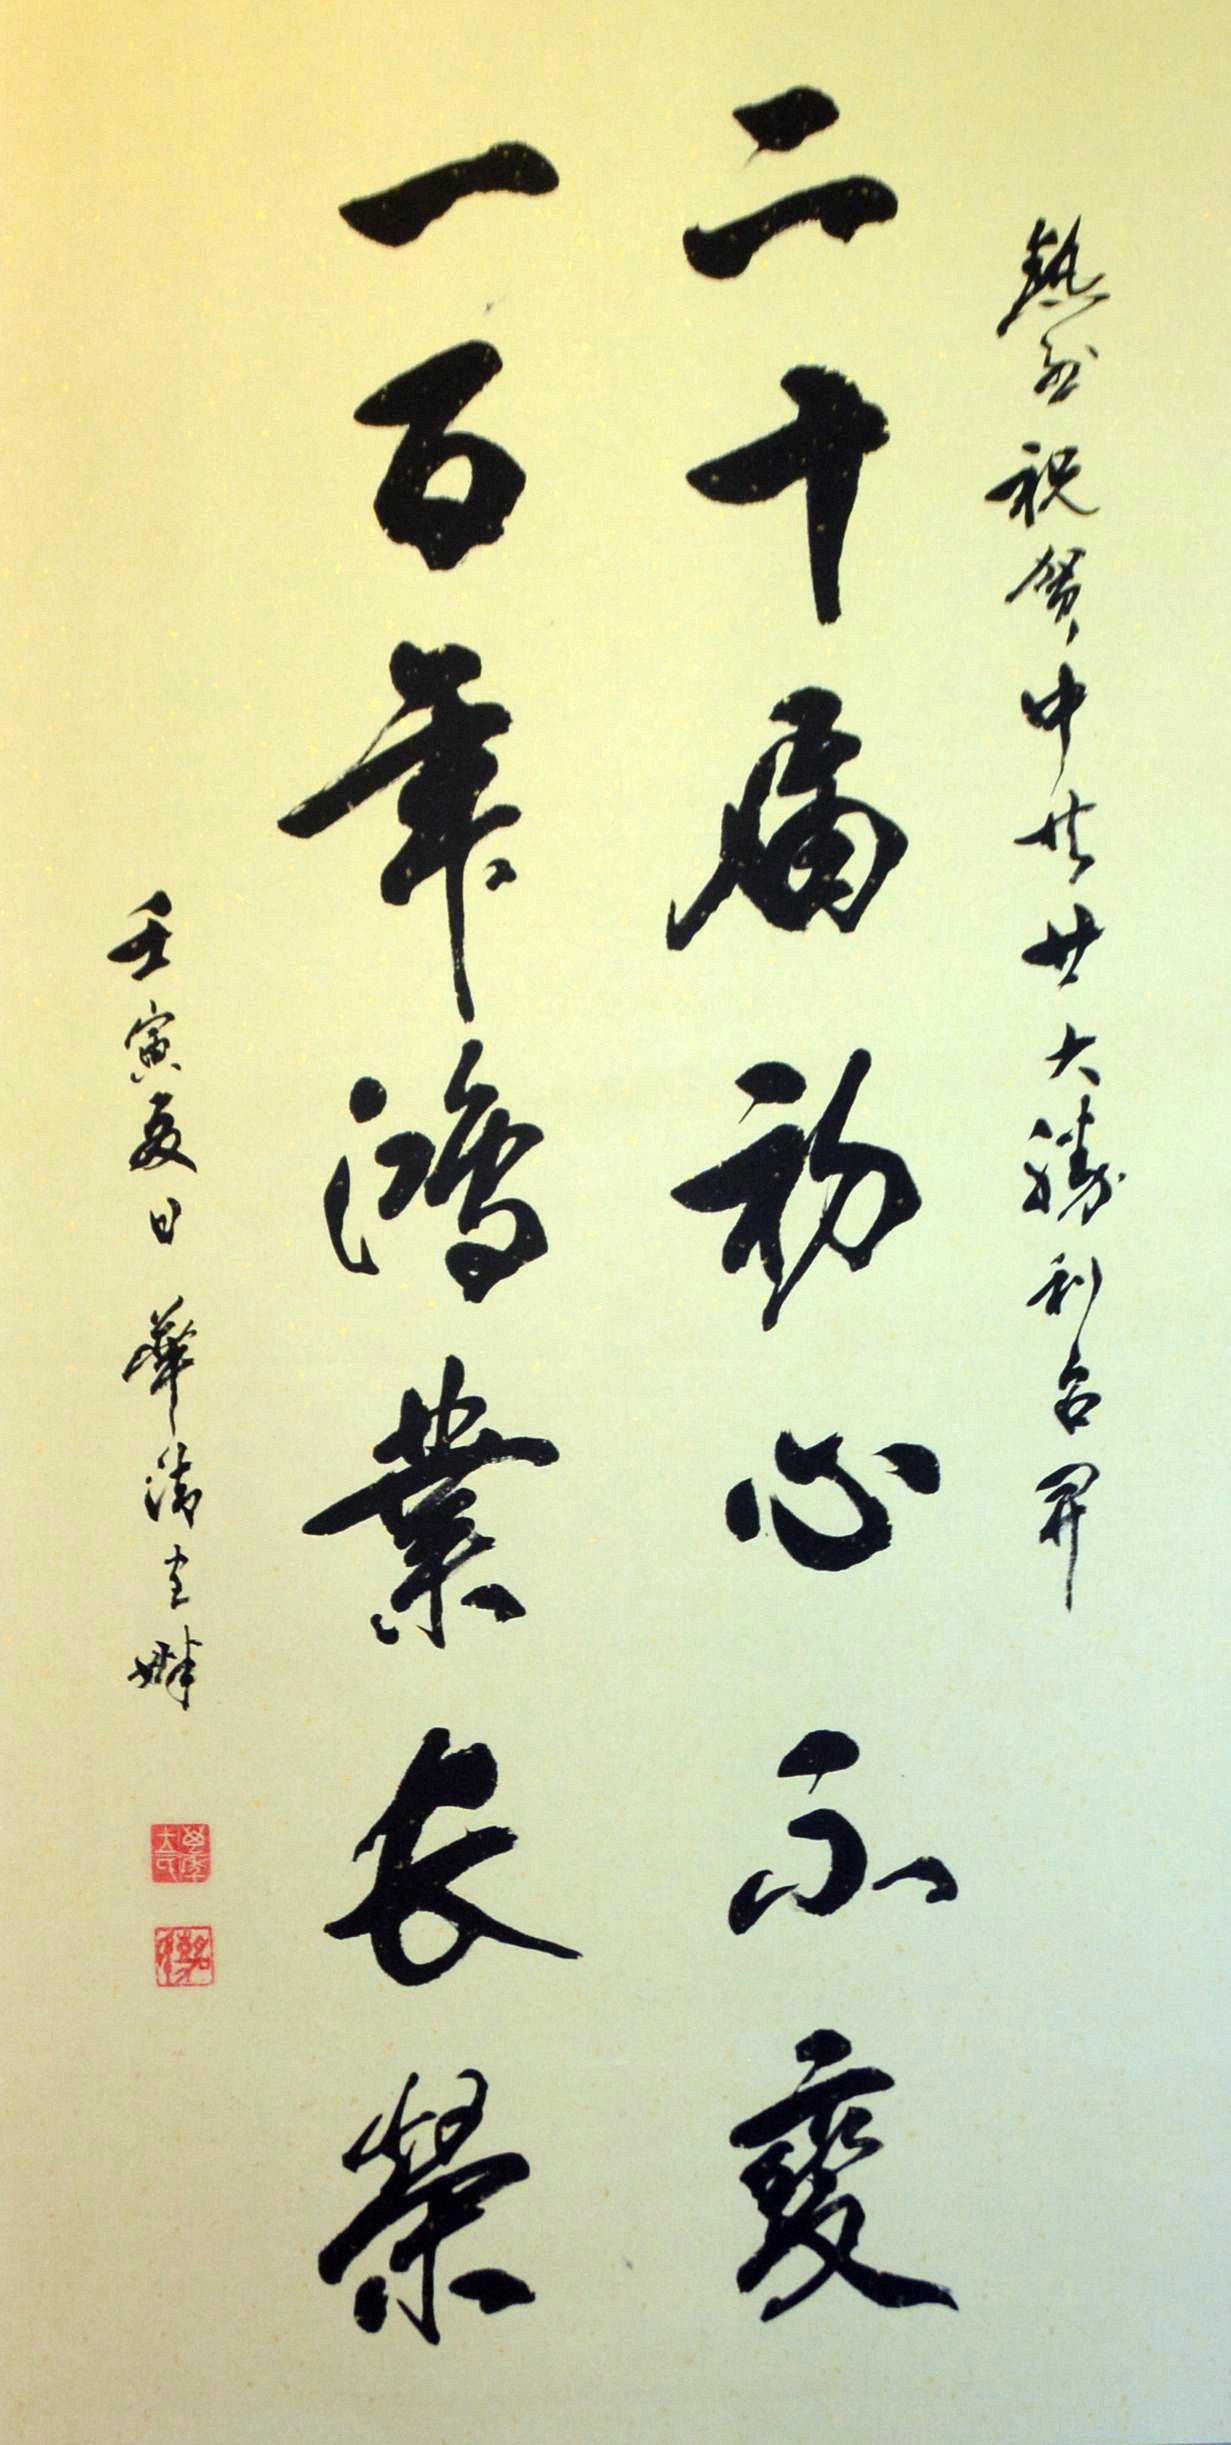 熱烈祝賀中共廿大勝利召開
二十届初心不變
一百年鴻業長榮
壬寅夏日 華清